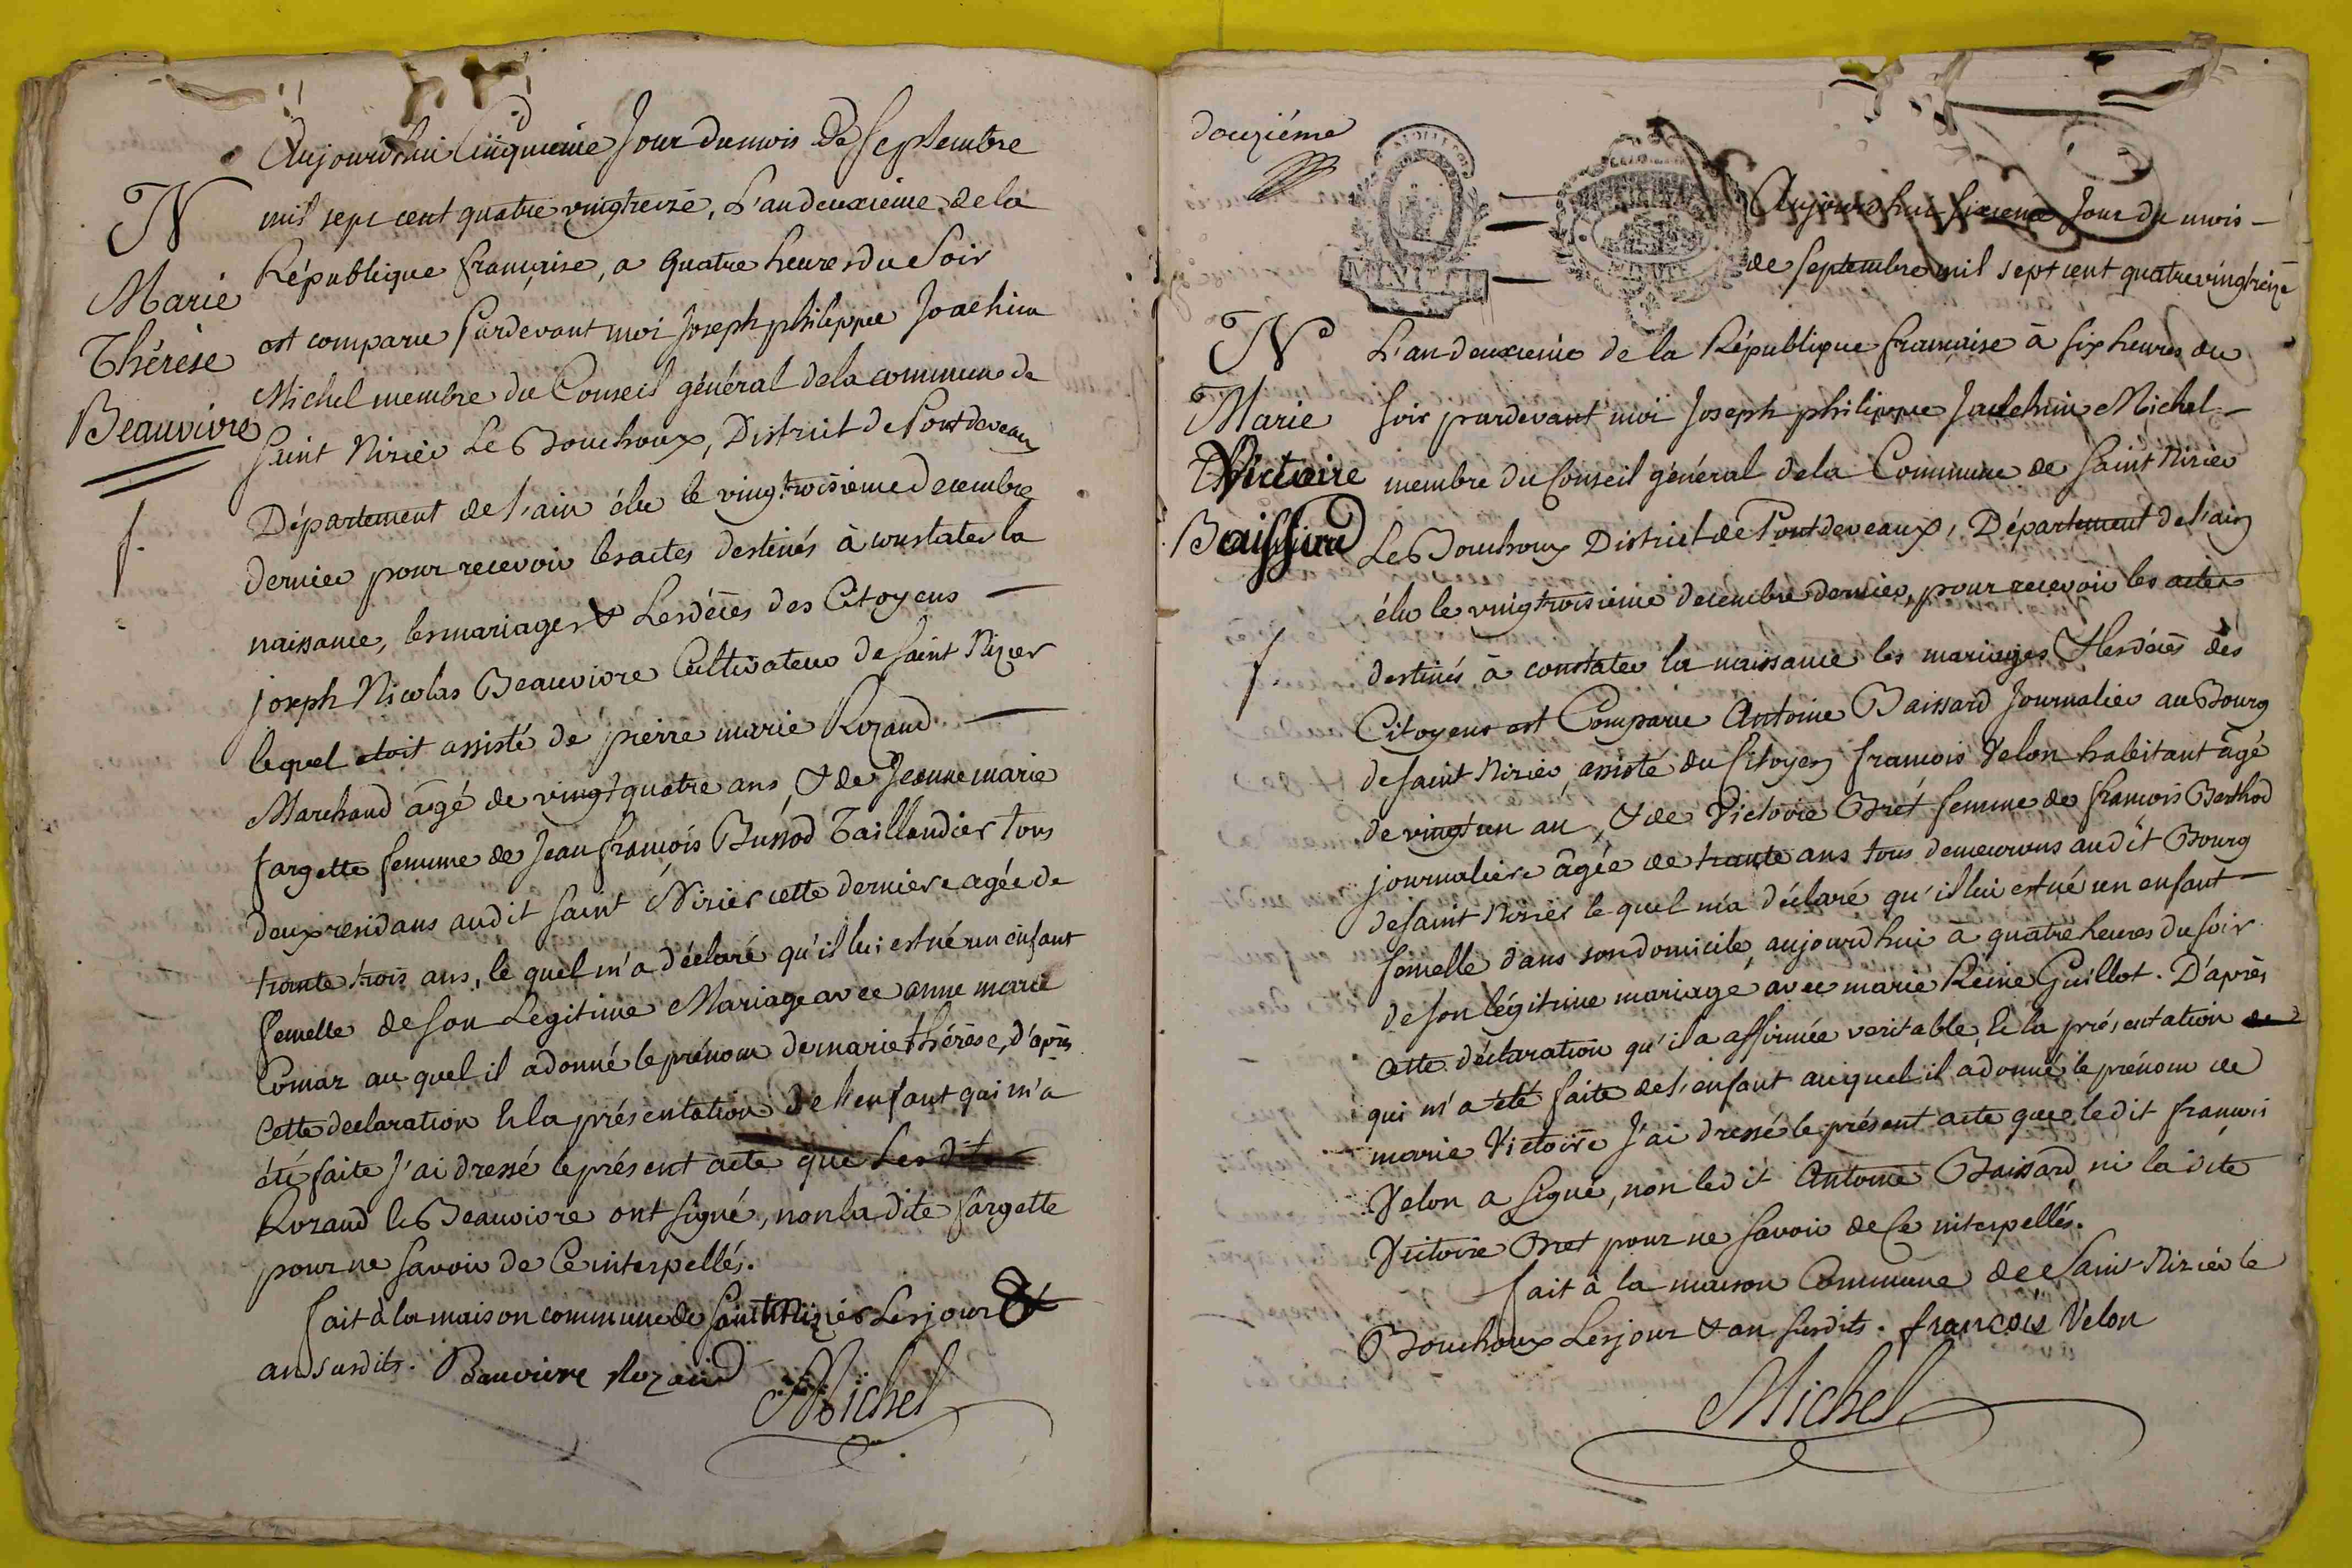 Aujourd'hui Cinquieme Jour du mois De Septembre
N
mil sept cent quatre vingt treize, L'an deuxieme de la
République française, a quatre heures du Soir
Marie
est comparu Pardevant moi Joseph philippe Joachim
Thérèse
Michel membre du Conseil général de la commune de
Beauvivre
Saint Nizier Le Bouchoux, District de Pontdevaux
Département de l'ain élu le vingt troisieme Decembre
f.
dernier pour recevoir les actes destinés à constater la
naissance, les mariages & Les décès des Citoyens
joseph Nicolas Beauvivre Cultivateur de Saint Nizier
lequel etoit assisté de pierre marie Rozand
Marchand âgé de vingt quatre ans, & de Jeanne marie
fargette femme de Jean françois Bussod Taillandier tous
deux residans audit Saint Nizier cette derniere agée de
trante trois ans, le quel m'a déclaré qu'il lui est né un enfant
femelle de son Legitime Mariage avec anne marie
Comaz au quel il a donné le prénom de marie thérèse, d'après
Cette declaration & la présentation de l'enfant qui m'a
été faite J'ai dressé le présent acte que Lesdits
Rozand & Beauvivre ont signé, non la dite fargette
pour ne savoir de Ce interpellés.
fait à la maison commune de Saint Nizier Les jour &
an susdits. Bauvivre Rozand Michel
douziéme
Aujourd'hui sixieme Jour du mois
de septembre mil sept cent quatre vingt treize
N
L'an deuxieme de la République française à six heures du
Marie
soir pardevant moi Joseph philippe Joachim Michel
Victoire
membre du Conseil général de la Commune de Saint Nizier
Baissard
Le Bouchoux District de Pontdeveaux, Département de l'ain
élu le vingt troisieme decembre dernier, pour recevoir les actes
f.
destinés à constater la naissance les mariages & les décès des
Citoyens est Comparu Antoine Baissard Journalier au Bourg
de saint Nizier, assisté du Citoyen françois Velon habitant âgé
de vingt un an, & de Victoire Bret femme de françois Berthod
journaliere âgée de trante ans tous demeurans au dit Bourg
de saint Nizier le quel m'a déclaré qu'il lui est né un enfant
femelle dans son domicile, aujourd'hui à quatre heures du soir
de son légitime mariage avec marie Reine Guillot. D'après
Cette déclaration qu'il a affirmée veritable, & la présentation de
qui m'a été faite de l'enfant auquel il a donné le prénom de
marie Victoire J'ai dressé le présent acte que ledit françois
Velon a signé, non ledit Antoine Baissard, ni la dite
Victoire Bret pour ne savoir de Ce interpellés.
fait à la maison Commune de Saint Nizier le
Bouchoux Les jour & an susdits. françois Velon
Michel